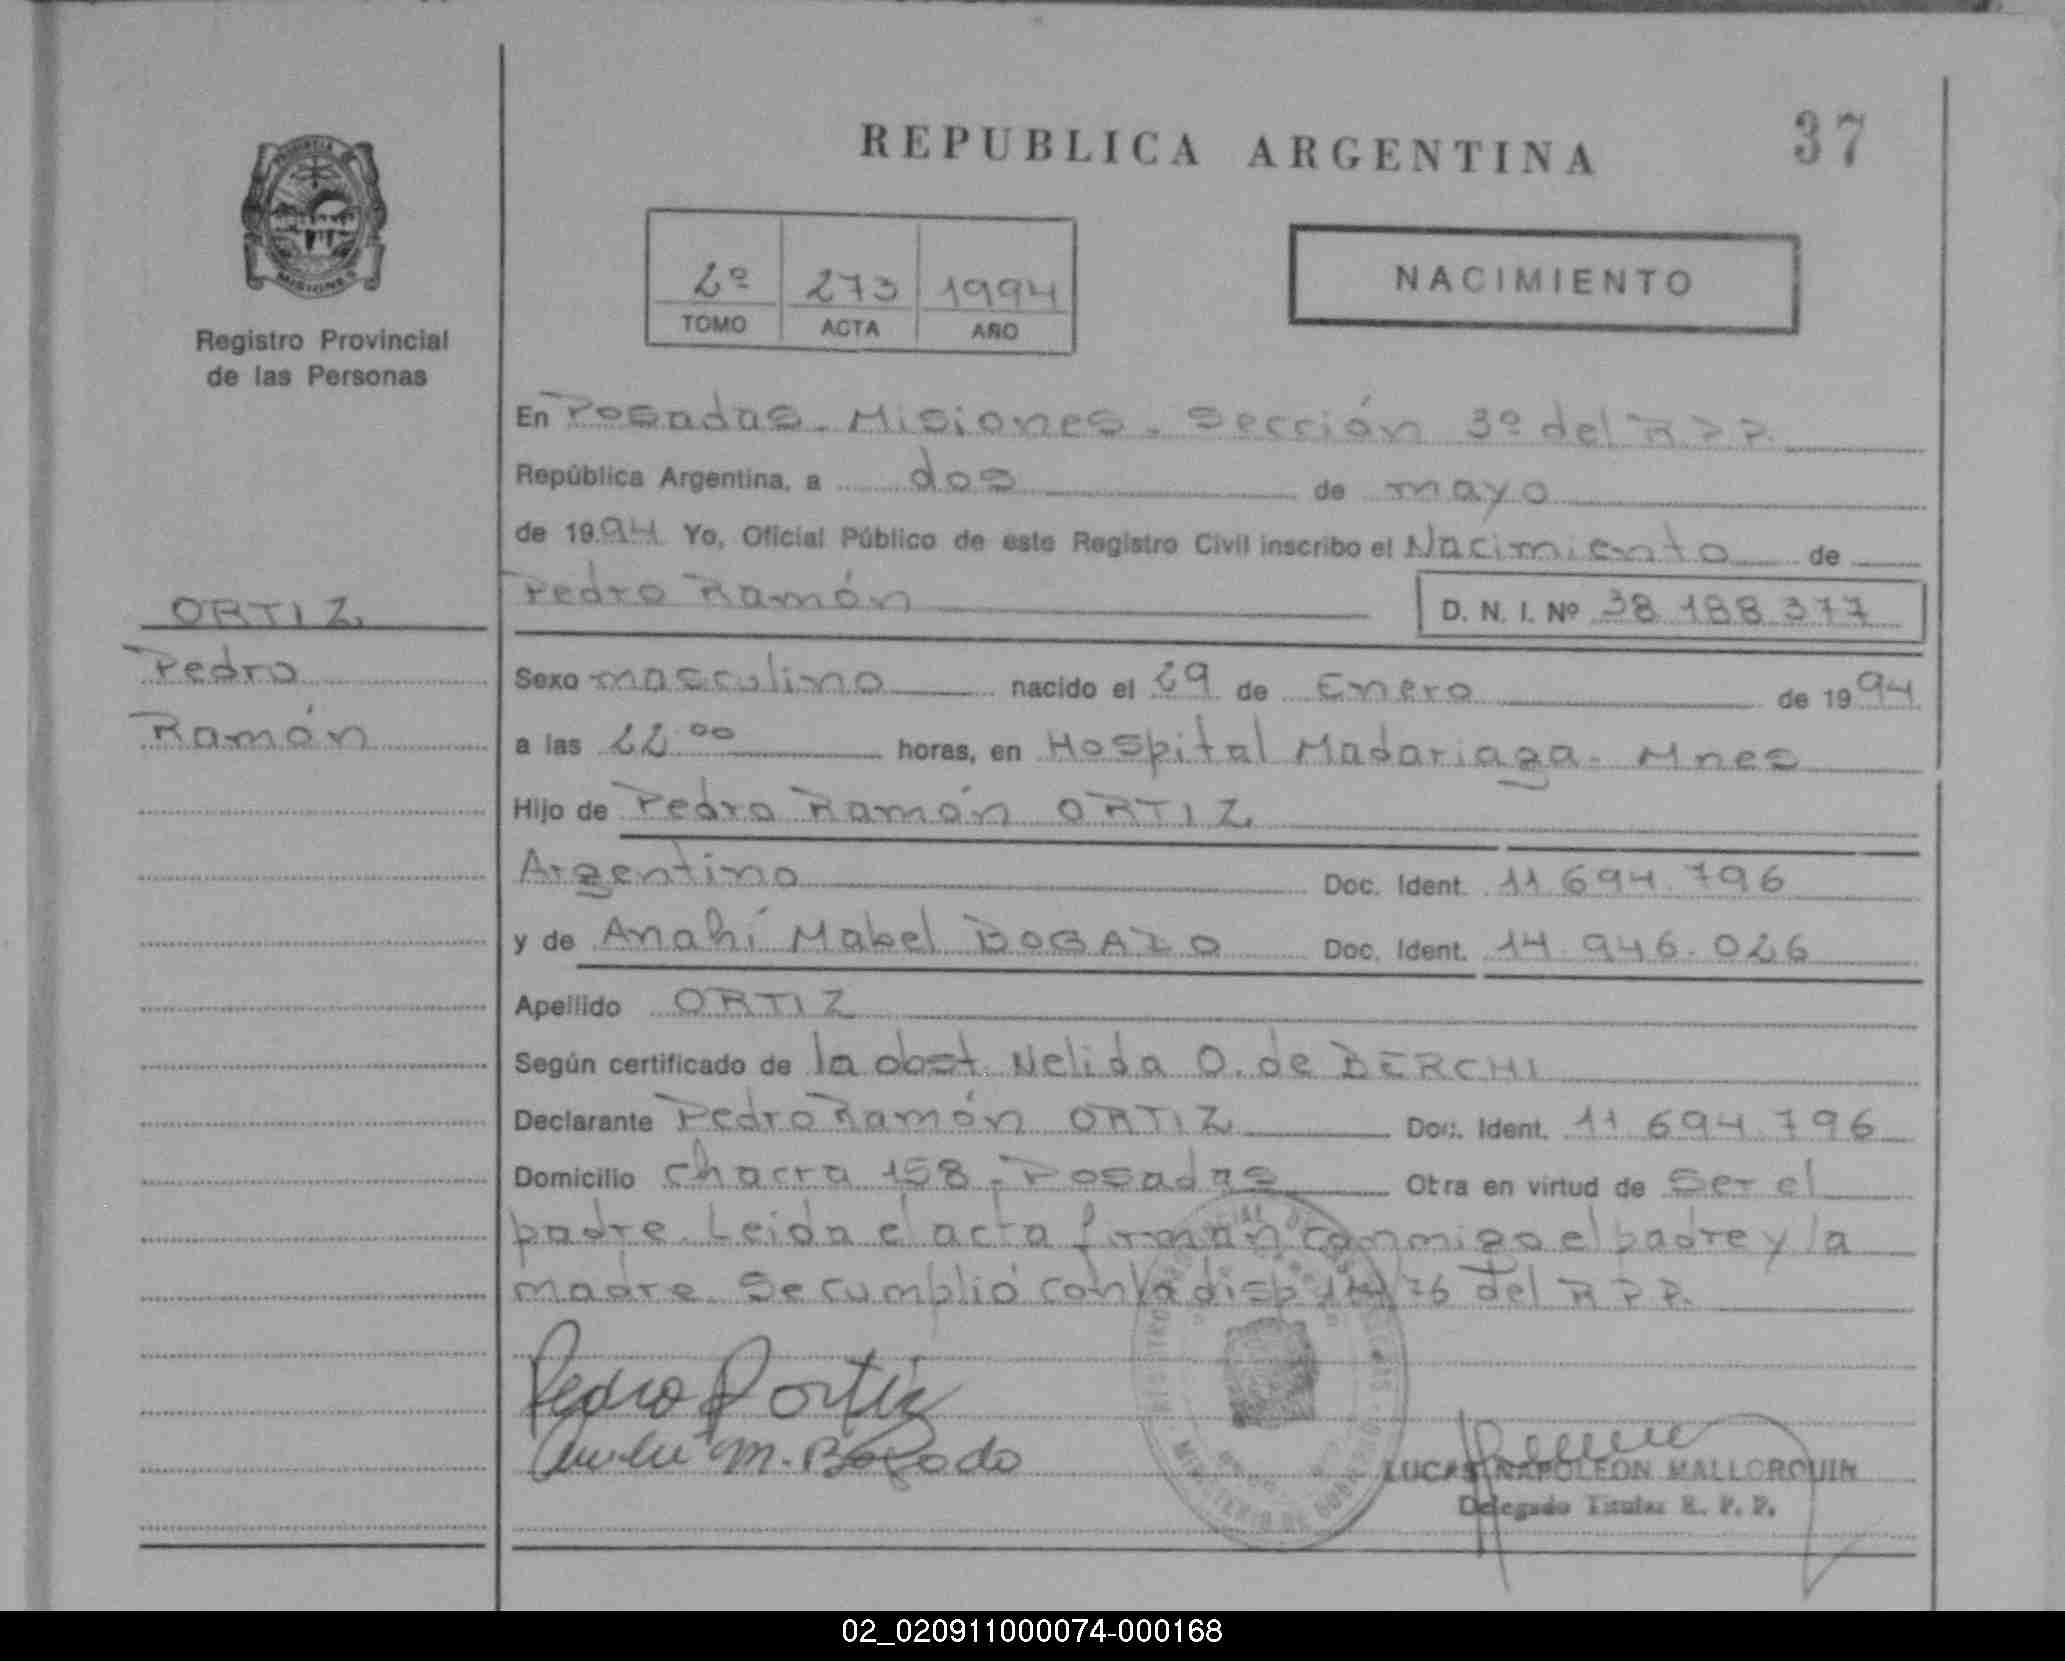 REPUBLICA ARGENTINA
37
PROVINCIA DE
MISIONES
Registro Provincial
de las Personas
2º 273 1994
TOMO ACTA AÑO
NACIMIENTO
En Posadas. Misiones. Sección 3º del R.P.P.
República Argentina, a dos de mayo
de 1994 Yo, Oficial Público de este Registro Civil inscribo el Nacimiento de
Pedro Ramón D. N. I. Nº 38 188 377
ORTIZ
Pedro
Ramón
Sexo masculino nacido el 29 de Enero de 1994
a las 22 00 horas, en Hospital Madariaga. Mnes
Hijo de Pedro Ramón ORTIZ
Argentino Doc. Ident. 11 694 796
y de Anahí Mabel BOGADO Doc. Ident. 14.946.026
Apellido ORTIZ
Según certificado de la obst. Nelida O. de BERCHI
Declarante Pedro Ramón ORTIZ Doc. Ident. 11 694 796
Domicilio chacra 158. Posadas Otra en virtud de ser el
padre. Leida el acta firman conmigo el padre y la
madre. Se cumplió con la disp 14/76 del R.P.P.
Pedro R Ortiz
M. Bogado
LUCAS NAPOLEON MALLORQUIN
Delegado Titular R. P. P.
02_020911000074-000168